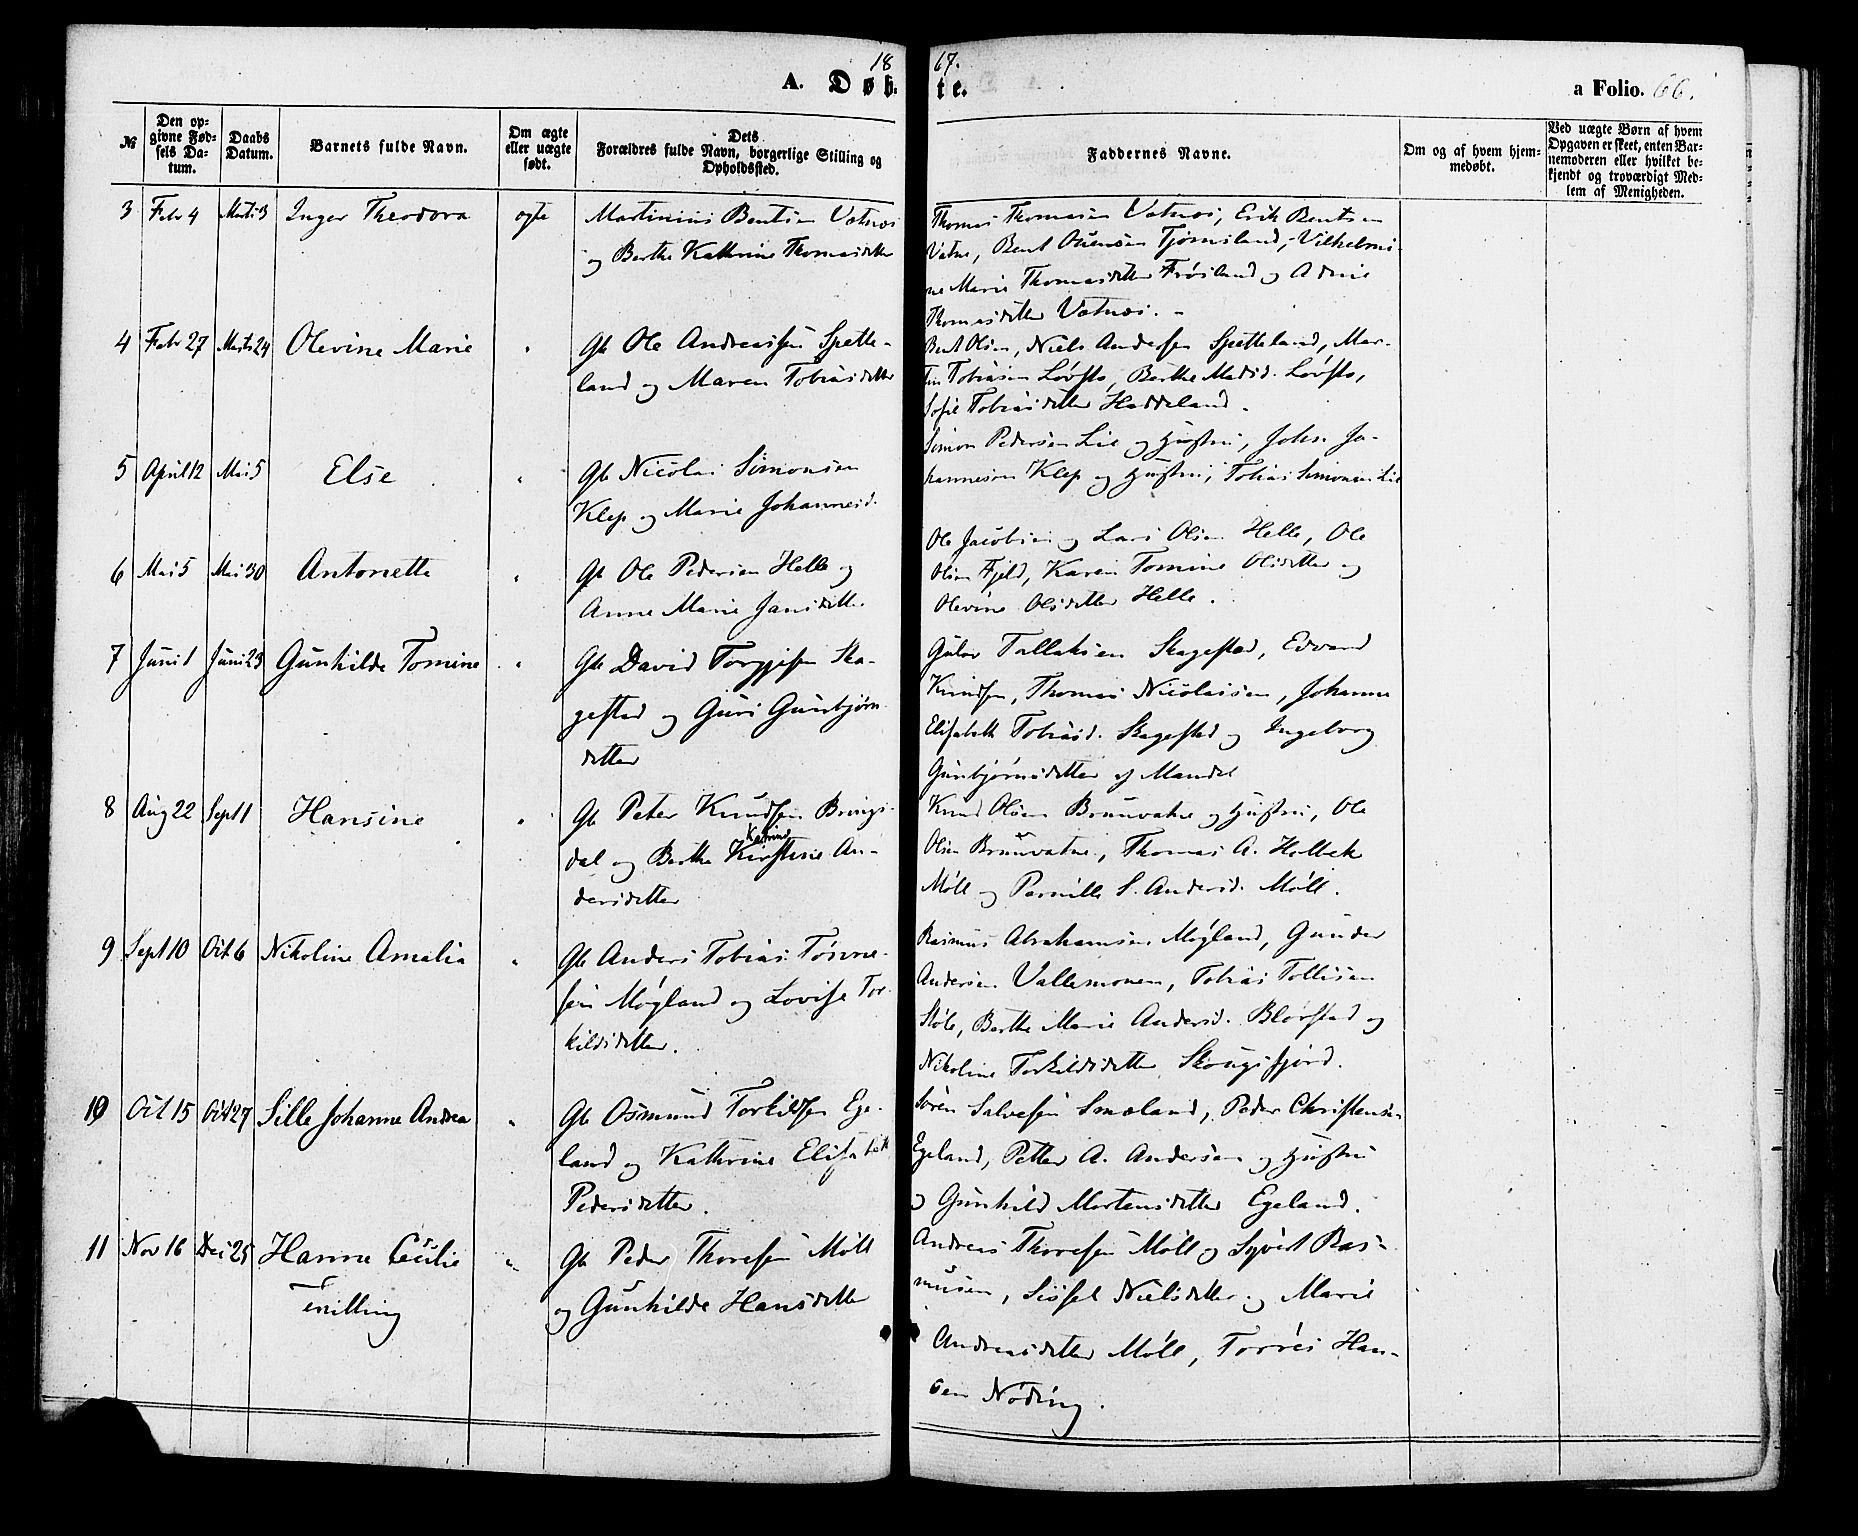 1867.
A. Døbte.
a Folio. 66.
№
Den opgivne Fødsels Datum.
Daabs Datum.
Barnets fulde Navn.
Om ægte eller uægte født.
Dets Forældres fulde Navn, borgerlige Stilling og Opholdssted.
Faddernes Navne.
Om og af hvem hjemmedøbt.
Ved uægte Børn af hvem Opgaven er skeet, enten Barnemoderen eller hvilket bekjendt og troværdigt Medlem af Menigheden.
3 Febr 4 Marts 3 Inger Theodora ægte Martinius Bentsen Vatnøi
og Berthe Kathrine Thomasdatter
Thomas Thomasen Vatnøi, Erik Bentsen
Vatne, Bent Tjømsland, Vilhelmi-
ne Marie Thomasdatter Frøisland og
Thomasdatter Vatnøi. -
4 Febr 27 Marts 24 Olevine Marie " Gb Ole Andreassen Spette-
land og Maren Tobiasdatter
Bent Olsen, Niels Andersen Spetteland, Mar-
tin Tobiasen Løvsto, Berthe Løvsto,
Sofie Tobiasdatter Haddeland.
5 April 12 Mai 5 Else " Gb Nicolai Simonsen
Klep og Marie Johannesd.
Simon Pedersen Lie og Hustru, Johs. Jo-
hannesen Klep og Hustru, Tobias Simonsen Lie
6 Mai 5 Mai 30 Antonette " Gb Ole Pedersen Helle og
Anne Marie Jansdatter
Ole Jacobsen og Lars Olsen Helle, Ole
Olsen Fjeld, Karen Tomine Olsdatter og
Olevine Olsdatter Helle.
7 Juni 1 Juni 23 Gunhilde Tomine " Gb David Torgjusen Ska-
gestad og Guri Gunbjørn
datter
Gulov Tallaksen Skagestad, Edvard
Knudsen, Thomas Nicolaisen, Johanne
Elisabeth Tobiasd. Skagestad og Ingeborg
Gunbjørnsdatter af Mandal
8 Aug 22 Sept 1 Hansine " Gb Peter Knudsen Brings-
dal og Berthe Kirstine An-
Katrine
dersdatter
Knud Olsen Bruunvatne og Hustru, Ole
Olsen Bruunvatne, Thomas A. Holbek
Møll og Pernille S. Andersd. Møll.
9 Sept 10 Oct 6 Nikoline Amalia " Gb Anders Tobias Tønne-
sen Møgland og Lovise Tor-
kildsdatter.
Rasmus Abrahamsen Møgland, Gunder
Andersen Vallemonen, Tobias Tollisen
Støle, Berthe Marie Andersd. Blørstad og
Nikoline Torkildsdatter Skougsfjord.
10 Oct 15 Oct 27 Sille Johanne Andrea " Gb Osmund Torkildsen Ege-
land og Kathrine Elisabeth
Pedersdatter.
Søren Salvesen Smeland, Peder Christensen
Egeland, Petter A. Andersen og Hustru
og Gunhild Mortensdatter Egeland.
11 Nov 16 Dec 25 Hanne Cecilie " Gb Peder Thoresen Møll
Tvilling
og Gunhilde Hansdatter
Andreas Thoresen Møll og Syvert Ras-
musen, Siøfel Nielsdatter og Marie
Andreasdatter Møll, Torres Han-
sen Nøding.